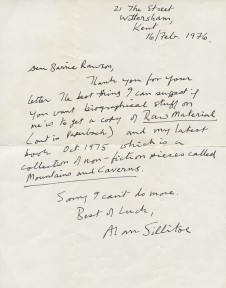 21 The Street
Wittersham,
Kent
16/Feb. 1976.
Dear Barrie Rawson,
Thank you for your
letter. The best thing I can suggest if
you want biographical stuff on
me is to get a copy of Raw Material
(out in Paperback) and my latest
book Oct 1975 which is a
collection of non-fiction pieces called
Mountains and Caverns.
Sorry I can't do more.
Best of Luck,
Alan Sillitoe